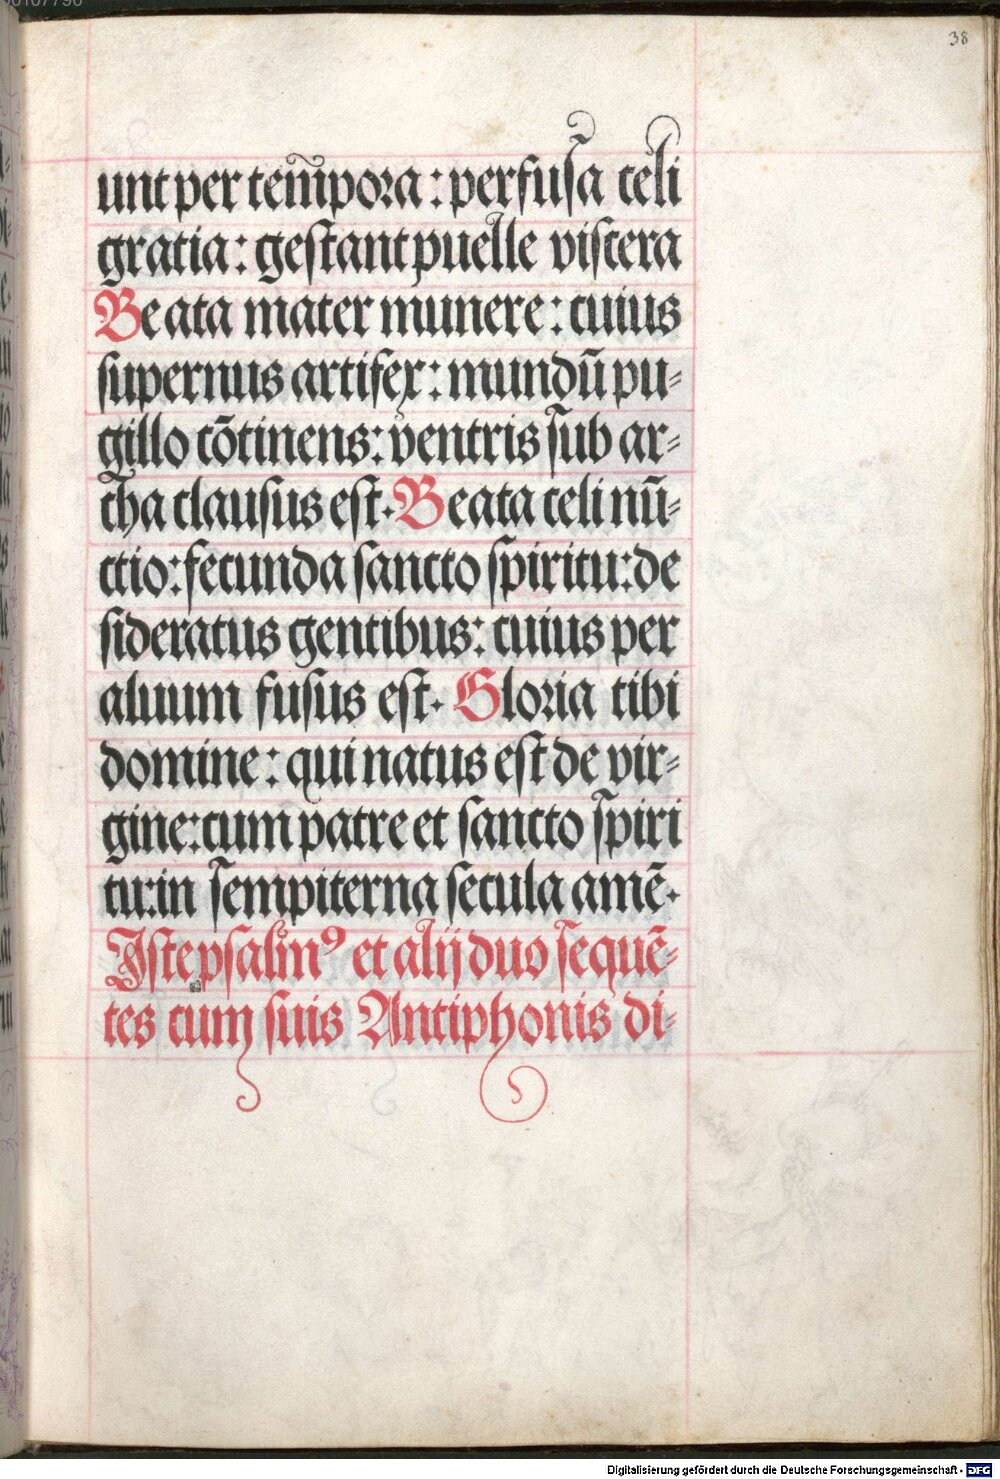 38
unt per tem̃pora : perfusa celi
gratia : gestant puelle viscera
Beata mater munere : cuius
supernus artifex : mundū pu⸗
gillo cōtinens : ventris sub ar⸗
cha clausus est. Beata celi nū⸗
ctio : fecunda sancto spiritu : de
sideratus gentibus : cuius per
aluum fusus est. Gloria tibi
domine : qui natus est de vir⸗
gine : cum patre et sancto spiri
tu : in sempiterna secula amē.
Iste psalm̄ꝰ et alij duo sequē⸗
tes cum suis Antiphonis di⸗
Digitalisierung gefördert durch die Deutsche Forschungsgemeinschaft - DFG